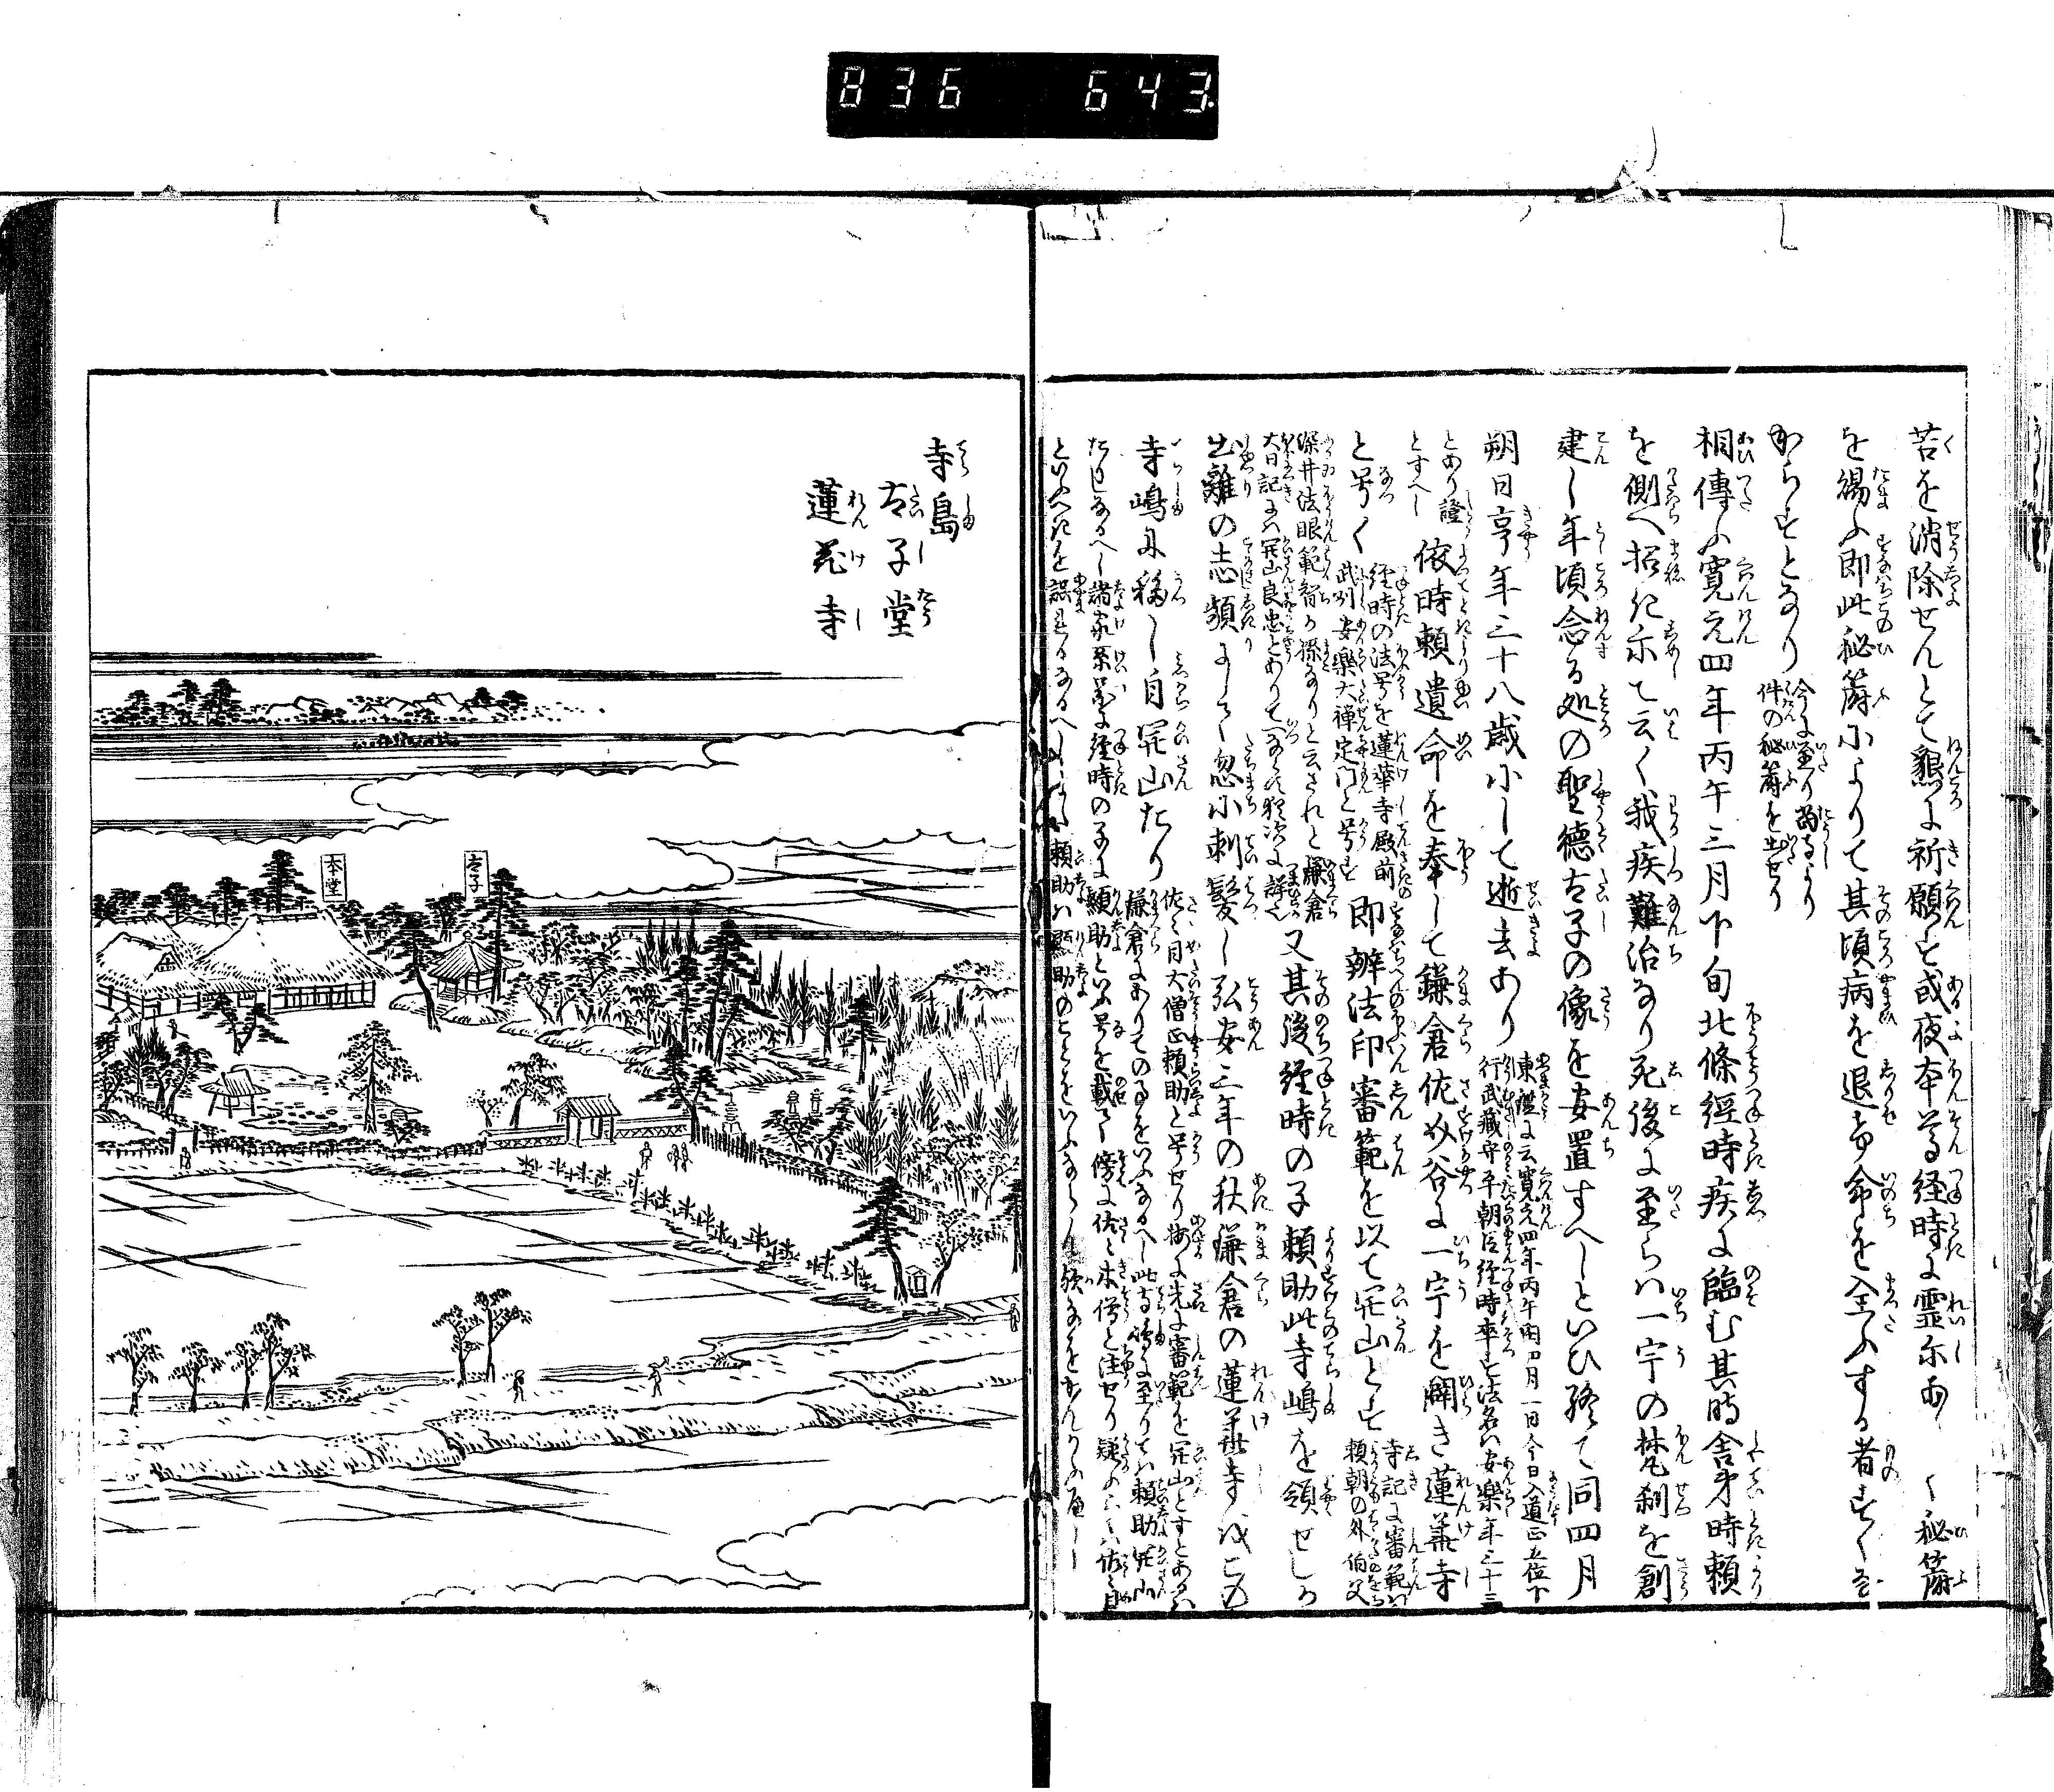 836 643
苦を消除せんとて懇に祈願す或夜本尊経時に霊示あり
を賜ふ即此秘符によりて其頃病を退け命を全ふする者すくな
からすとなり
今に至り當寺より
件の秘符を出せり
相傳ふ寛元四年丙午三月下旬北條經時疾に臨む其時舎弟時頼
を側へ招き示て云く我疾難治なり死後に至らハ一宇の梵刹を創
建し年頃念る処の聖徳太子の像を安置すへしといひ終て同四月
朔日享年三十八歳にして逝去あり
東鑑に云寛元四年丙午閏四月一日今日入道正五位下
行武藏守平朝臣経時卒す法名ハ安樂年三十三
とあり證
とすへし
依時頼遺命を奉して鎌倉佐介谷に一宇を闢き蓮華寺
と号く
経時の法号を蓮華寺殿前
武州安樂大禅定門と号す
即辨法印審範を以て開山とす
寺記に審範ハ
頼朝の外伯父
深井法眼範智の孫なりと云されと鎌倉
大日記にハ開山良忠とあり
又其後経時の子頼助此寺嶋を領せしか
出離の志頻にして忽に剃髪し弘安三年の秋鎌倉の蓮華寺をこの
寺嶋に移し自開山たり
佐々目大僧正頼助と号せり按に先に審範を開山とすとあるハ
鎌倉にありての事をいふなるへし此寺嶋に至りてハ頼助開山
たりしなるへし諸家系圖に経時の子に頼助といふ号を載て傍に佐々木僧と注せり疑ふらくハ佐々目
といふへきを誤れるなるへし
寺島
太子堂
蓮花寺
太子
本堂